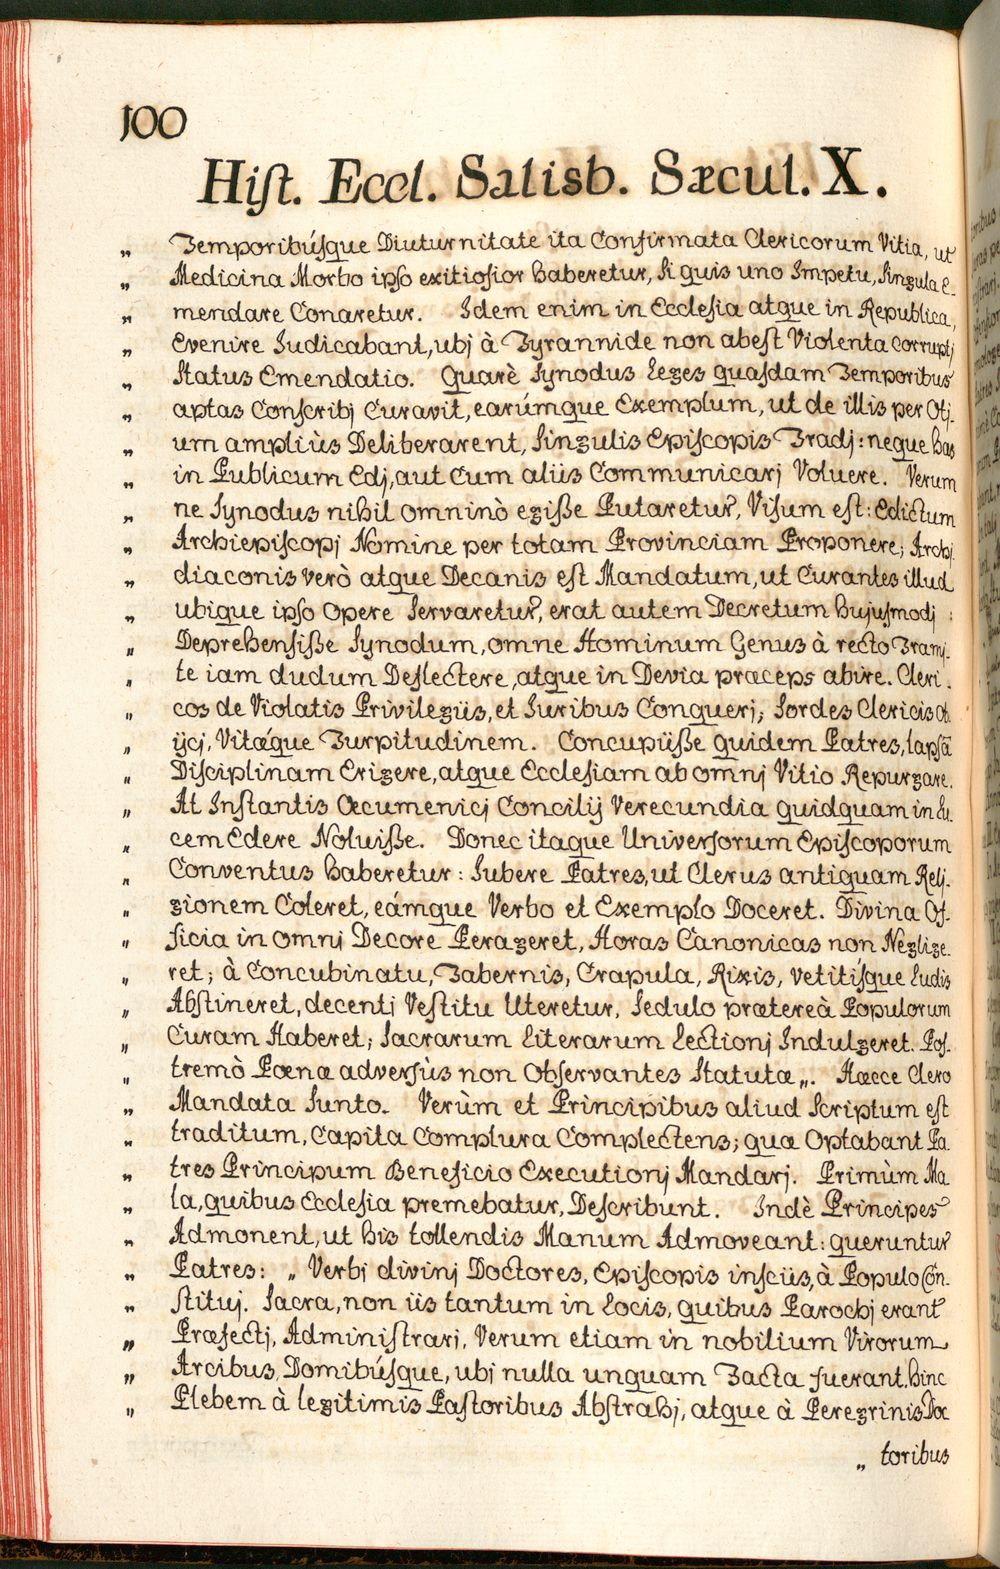 100
Hist. Eccl. Salisb. Sæcul. X.
„ Temporibúsque Diuturnitate ita Confirmata Clericorum Vitia, ut
„ Medicina Morbo ipso exitiosior haberetur, Si quis uno Impetu, Singula E-
„ mendare Conaretur. Idem enim in Ecclesia atque in Republica,
„ Evenire Iudicabant, ubj à Tyrannide non abest Violenta Corruptj
„ Status Emendatio. Quarè Synodus Leges quasdam Temporibus
„ aptas Conscribj Curavit, earúmque Exemplum, ut de illis per Otj-
„ um ampliùs Deliberarent, Singulis Episcopis Tradj: neque has
„ in Publicum Edj, aut Cum aliis Communicarj Voluere. Verum
„ ne Synodus nihil omninò egisse Putaretur, Visum est: Edictum
„ Archiepiscopj Nomine per totam Provinciam Proponere; Archj-
„ diaconis verò atque Decanis est Mandatum, ut Curantes illud
„ ubique ipso Opere Servaretur, erat autem Decretum hujusmodj :
„ Deprehensisse Synodum, omne Hominum Genus à recto Tramj-
„ te iam dudum Deflectere, atque in Devia præceps abire. Cleri-
„ cos de Violatis Privilegiis, et Iuribus Conquerj; Sordes Clericis Ob-
„ ijcj, Vitæque Turpitudinem. Concupiisse quidem Patres, lapsã
„ Disciplinam Erigere, atque Ecclesiam ab omnj Vitio Repurgare.
„ At Instantis Œcumenicj Concilij Verecundia quidquam in Lu-
„ cem Edere Noluisse. Donec itaque Universorum Episcoporum
„ Conventus haberetur: Iubere Patres, ut Clerus antiquam Relj-
„ gionem Coleret, eámque Verbo et Exemplo Doceret. Divina Of-
„ ficia in omnj Decore Perageret, Horas Canonicas non Neglige-
„ ret; à Concubinatu, Tabernis, Crapula, Rixis, vetitísque Ludis
„ Abstineret, decentj Vestitu Uteretur, Sedulo prætereà Populorum
„ Curam Haberet; Sacrarum Literarum Lectionj Indulgeret. Pos-
„ tremò Pœnæ adversùs non Observantes Statutæ „. Hæcce Clero
„ Mandata Sunto. Verùm et Principibus aliud Scriptum est
„ traditum, Capita Complura Complectens; quæ Optabant Pa-
„ tres Principum Beneficio Executionj Mandarj. Primùm Ma-
„ la, quibus Ecclesia premebatur, Describunt. Indè Principes
„ Admonent, ut his tollendis Manum Admoveant: queruntur
„ Patres: „ Verbj divinj Doctores, Episcopis insciis, à Populo Con-
„ stituj. Sacra, non iis tantum in Locis, quibus Parochj erant
„ Præfectj, Administrari, Verum etiam in nobilium Virorum
„ Arcibus, Domibúsque, ubj nulla unquam Tacta fuerant, hinc
„ Plebem à legitimis Pastoribus Abstrahj, atque à Peregrinis Doc
„ toribus